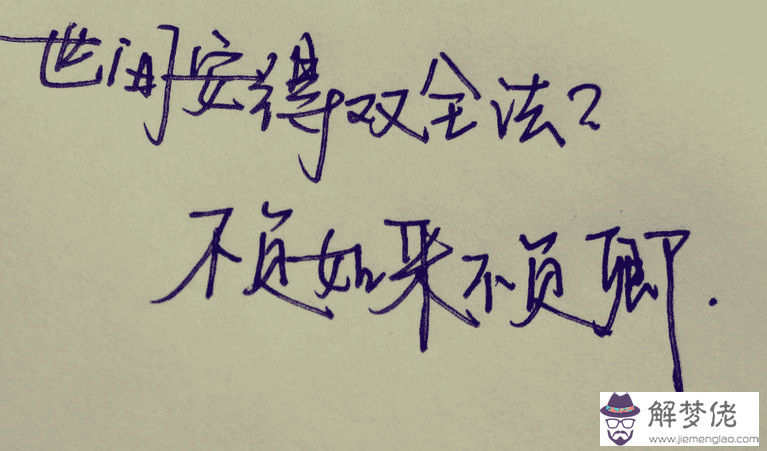 世间安得双全法?
不负如来不负卿.
解梦佬
www.jiemenglao.com